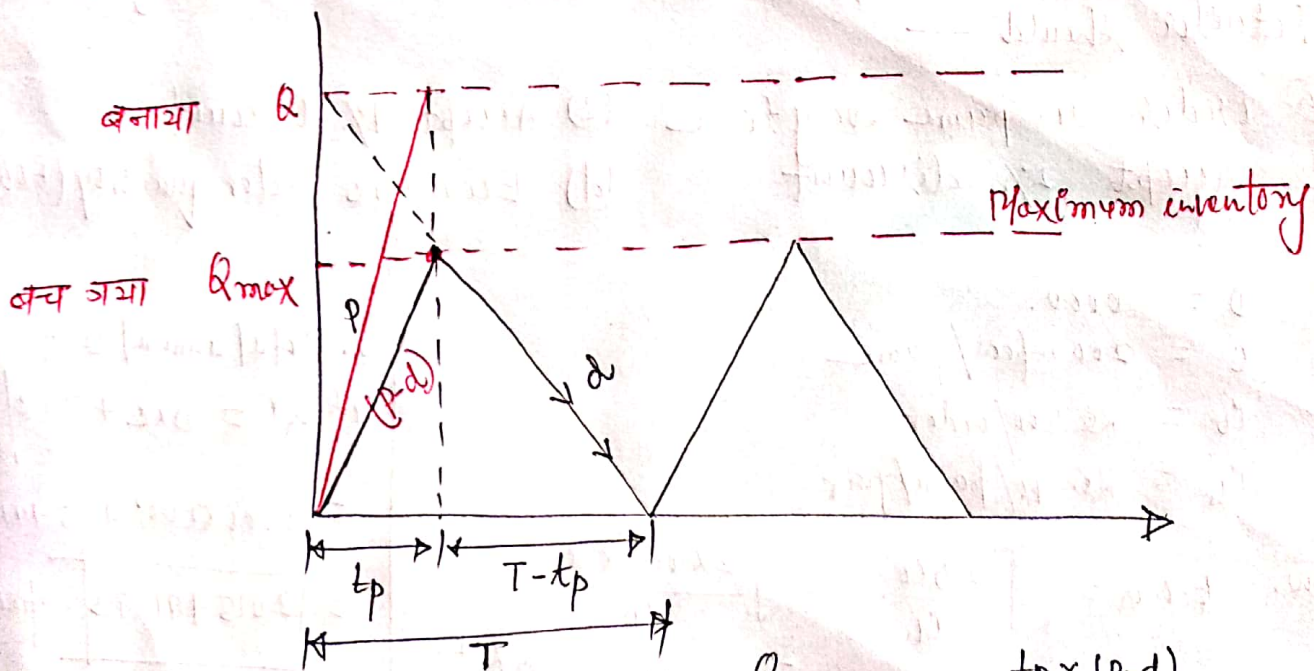 बनाया Q
Maximum inventory
बच गया Qmax
P
(P-d)
d
tp
T-tp
T
tp x (p-d)